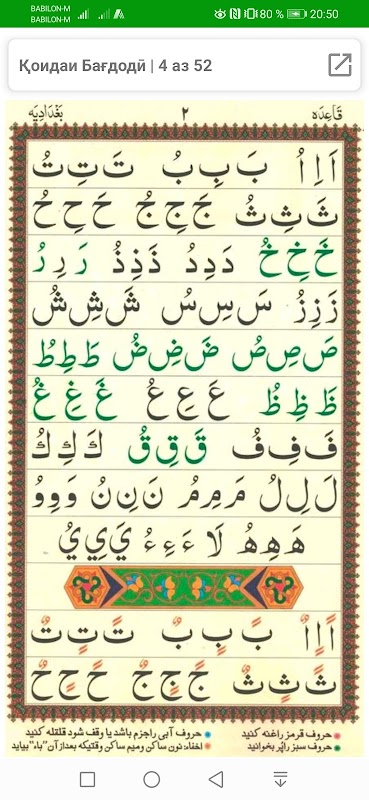 BABILON-M
BABILON-M
80 % 20:50
Қоидаи Бағдодӣ | 4 аз 52
قَاعِدَه ٢ بَغْدَادِيَه
اَ اِ اُ بَ بِ بُ تَ تِ تُ
ثَ ثِ ثُ جَ جِ جُ حَ حِ حُ
خَ خِ خُ دَ دِ دُ ذَ ذِ ذُ رَ رِ رُ
زَ زِ زُ سَ سِ سُ شَ شِ شُ
صَ صِ صُ ضَ ضِ ضُ طَ طِ طُ
ظَ ظِ ظُ عَ عِ عُ غَ غِ غُ
فَ فِ فُ قَ قِ قُ كَ كِ كُ
لَ لِ لُ مَ مِ مُ نَ نِ نُ وَ وِ وُ
هَ هِ هُ لَا ءَ ءِ ءُ يَ يِ يُ
اً اٍ اٌ بً بٍ بٌ تً تٍ تٌ
ثً ثٍ ثٌ جً جٍ جٌ حً حٍ حٌ
حروف قرمز راغنه كنيد حروف آبى راجزم باشد يا وقف شود قلقله كنيد
حروف سبز راپُر بخوانيد اخفاء: نون ساكن وميم ساكن وقتيكه بعداز آن "باء" بيايد